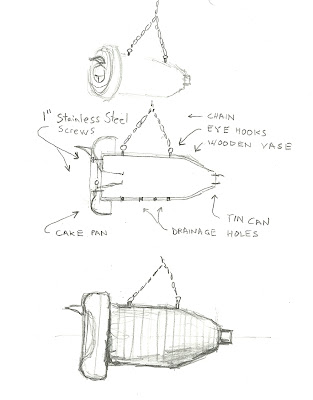 1" Stainless Steel
Screws
CHAIN
EYE HOOKS
WOODEN VASE
CAKE PAN
DRAINAGE
HOLES
TIN CAN